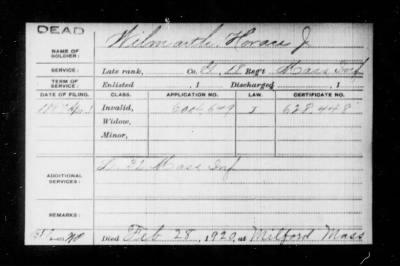 DEAD
NAME OF SOLDIER: Wilmarth, Horace J
SERVICE: Late rank, Co. Reg't Mass Inf
TERM OF SERVICE: Enlisted , 1 Discharged , 1
DATE OF FILING. CLASS. APPLICATION NO. LAW. CERTIFICATE NO.
Invalid, 628,448
Widow,
Minor,
ADDITIONAL SERVICES: Mass Inf
REMARKS:
Died Feb 28, 1920, at Milford Mass